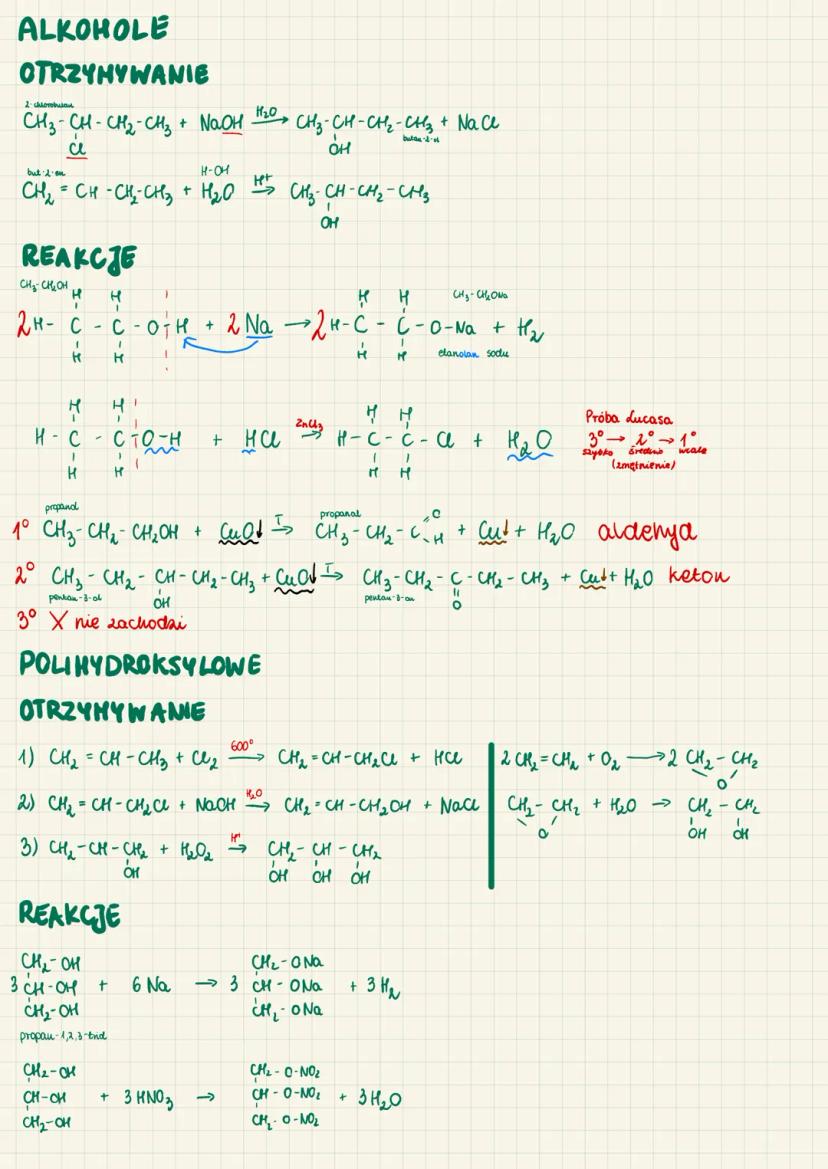 ALKOHOLE
OTRZYMYWANIE
2-chlorobutan
CH₃-CH-CH₂-CH₃ + NaOH →(H₂O) CH₃-CH-CH₂-CH₃ + NaCl
Cl OH butan-2-ol
but-1-en H-OH
CH₂=CH-CH₂-CH₃ + H₂O →(H⁺) CH₃-CH-CH₂-CH₃
OH
REAKCJE
CH₃-CH₂OH
H H H H CH₃-CH₂ONa
2H-C-C-O-H + 2Na → 2H-C-C-O-Na + H₂
H H H H etanolan sodu
H H H H Próba Lucasa
H-C-C-O-H + HCl →(ZnCl₂) H-C-C-Cl + H₂O 3° → 2° → 1°
szybko średnio wcale
H H H H (zmętnienie)
propanol propanal O
1° CH₃-CH₂-CH₂OH + CuO↓ →(T) CH₃-CH₂-C-H + Cu↓ + H₂O aldehyd
2° CH₃-CH₂-CH-CH₂-CH₃ + CuO↓ →(T) CH₃-CH₂-C-CH₂-CH₃ + Cu↓ + H₂O keton
pentan-3-ol OH pentan-3-on O
3° X nie zachodzi
POLIHYDROKSYLOWE
OTRZYMYWANIE
1) CH₂=CH-CH₃ + Cl₂ →(600°) CH₂=CH-CH₂Cl + HCl
2) CH₂=CH-CH₂Cl + NaOH →(H₂O) CH₂=CH-CH₂OH + NaCl
3) CH₂-CH-CH₂ + H₂O₂ →(H⁺) CH₂-CH-CH₂
OH OH OH OH
2CH₂=CH₂ + O₂ → 2CH₂-CH₂
O
CH₂-CH₂ + H₂O → CH₂-CH₂
O OH OH
REAKCJE
CH₂-OH CH₂-ONa
3 CH-OH + 6Na → 3 CH-ONa + 3H₂
CH₂-OH CH₂-ONa
propan-1,2,3-triol
CH₂-OH CH₂-O-NO₂
CH-OH + 3HNO₃ → CH-O-NO₂ + 3H₂O
CH₂-OH CH₂-O-NO₂